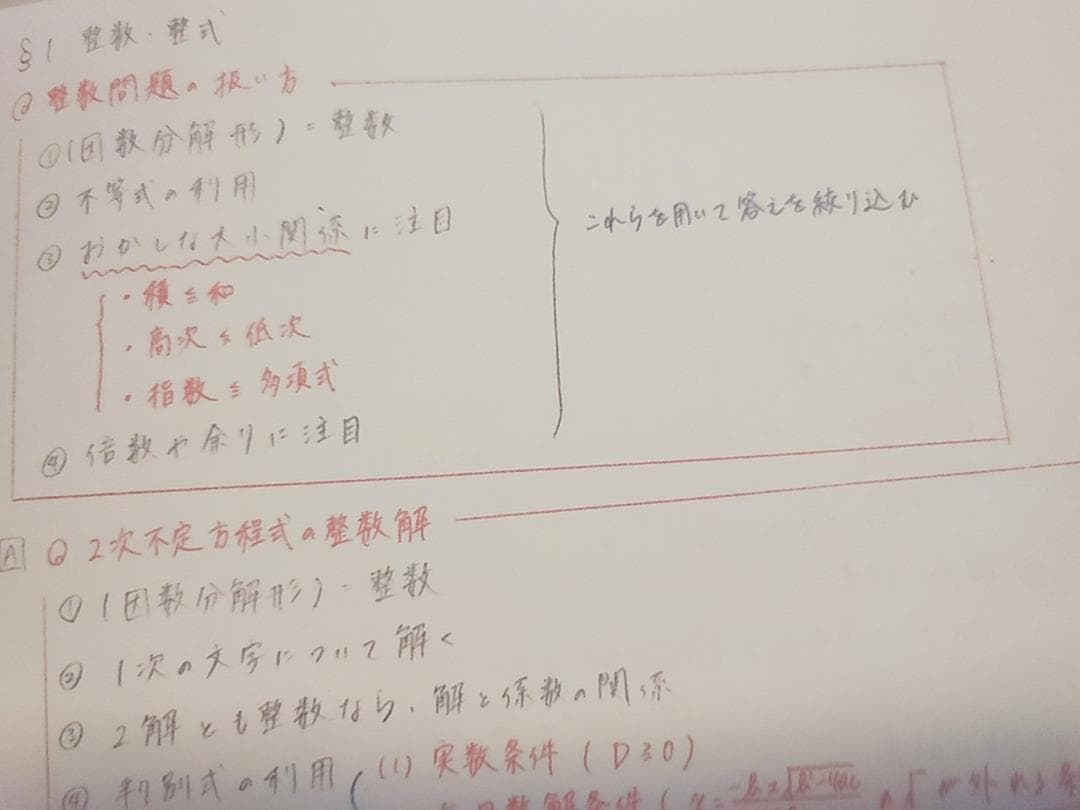 §1 整数・整式
◎ 整数問題の扱い方
①(因数分解形)=整数
② 不等式の利用
③ おかしな大小関係に注目
・積≦和
・高次≦低次
・指数≦多項式
④ 倍数や余りに注目
これらを用いて答えを絞り込む
A ◎ 2次不定方程式の整数解
①(因数分解形)=整数
② 1次の文字について解く
③ 2解とも整数なら、解と係数の関係
④ 判別式の利用 (1) 実数条件 (D≧0)
数解条件